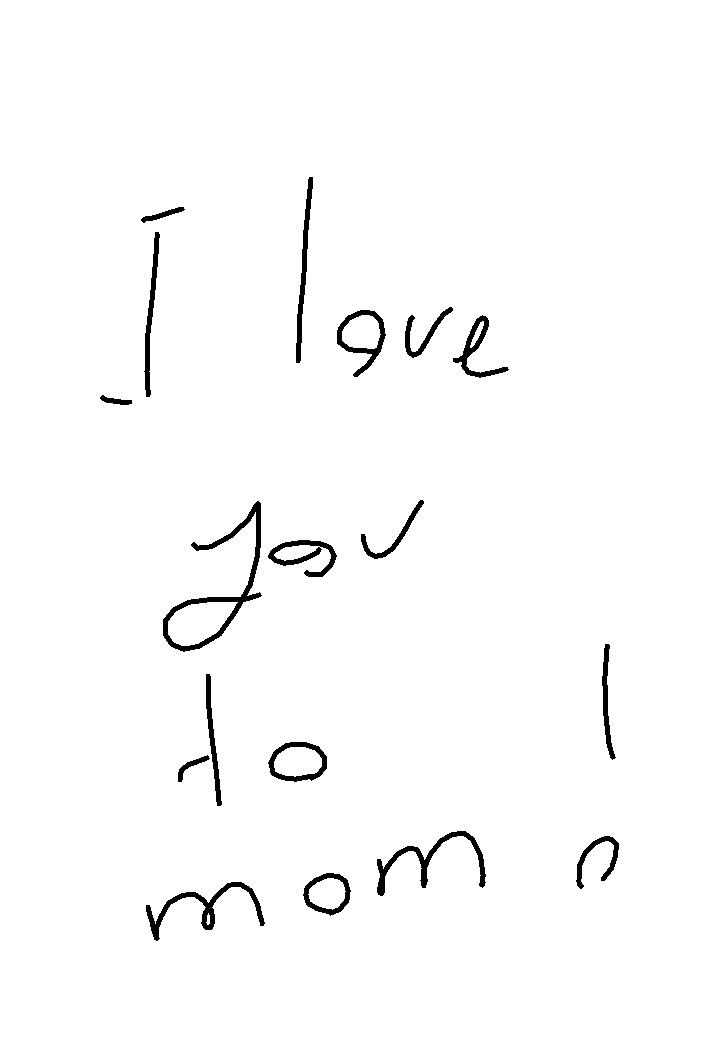 I love
you
to
mom!